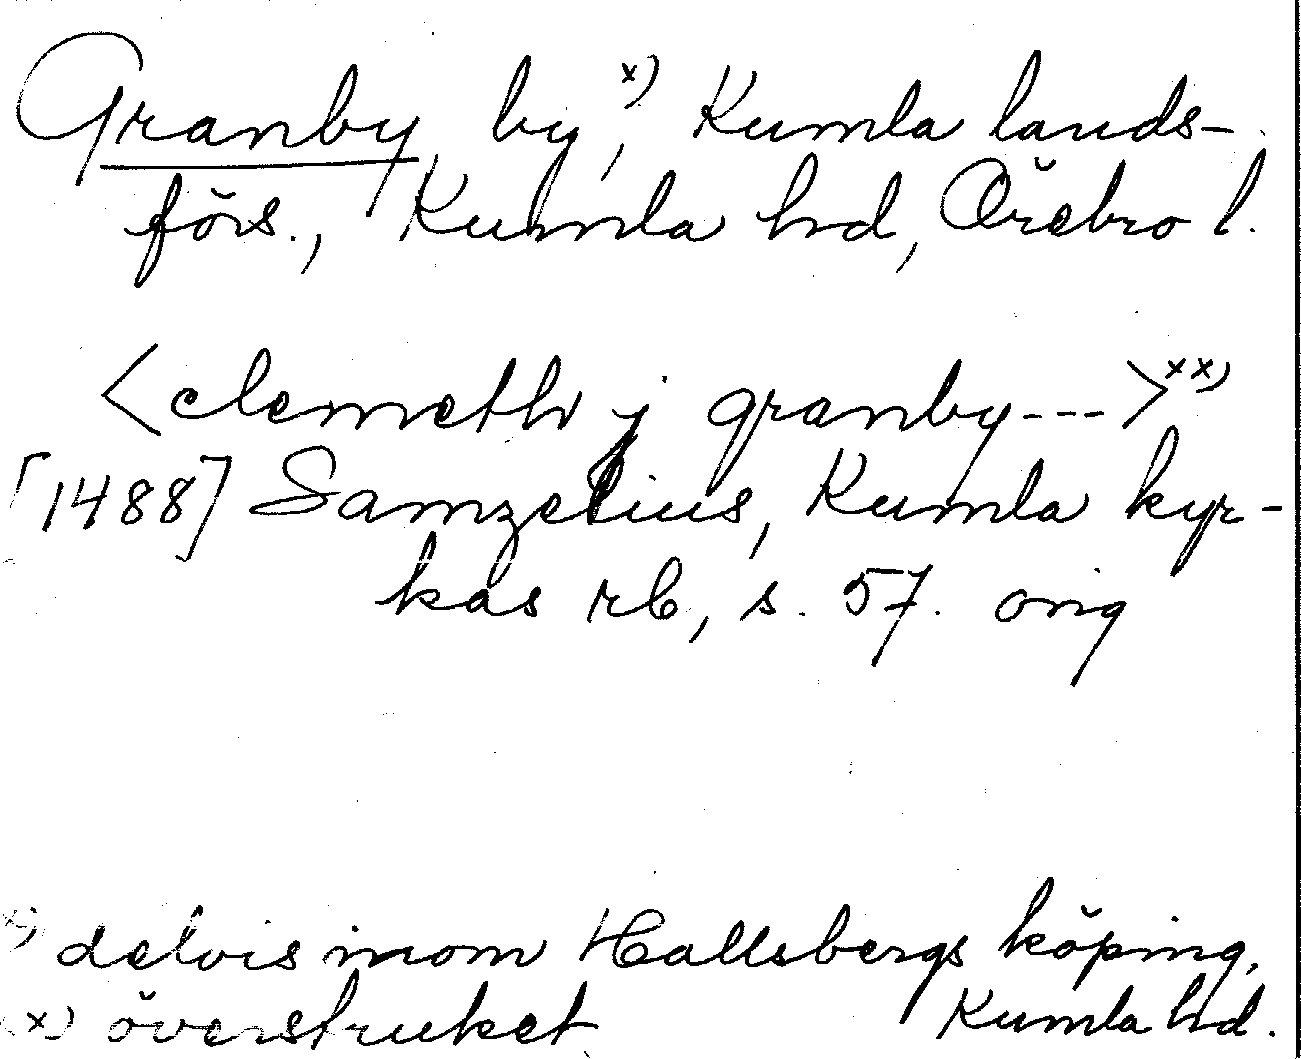 Granby, by x), Kumla lands-
förs., Kumla hd, Örebro l.
<clemeth j granby--->xx)
[1488] Samzelius, Kumla kyr-
kas rb, s. 57. orig
x) delvis inom Hallsbergs köping,
Kumla hd.
xx) överstruket